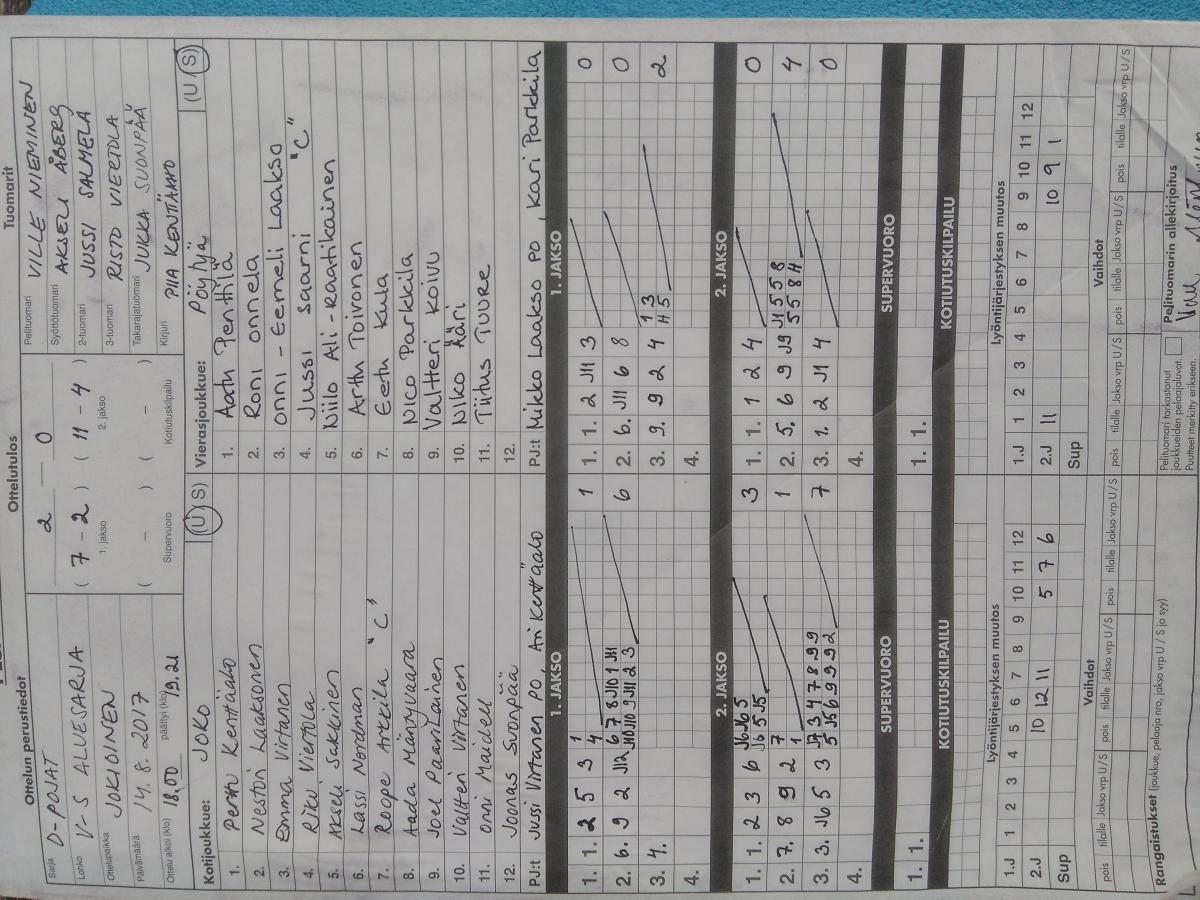 Ottelun perustiedot
Sarja D-POJAT
Lohko V-S ALUESARJA
Ottelupaikka JOKIOINEN
Päivämäärä 14.8.2017
Ottelu alkoi (klo) 18.00 päättyi (klo) 19.21
Ottelutulos
2 0
( 7 - 2 ) ( 11 - 4 )
1. jakso 2. jakso
( - ) ( - )
Supervuoro Kotiutuskilpailu
Tuomarit
Pelituomari VILLE NIEMINEN
Syöttötuomari AKSELI ÅBERG
2-tuomari JUSSI SALMELA
3-tuomari RISTO VIERTOLA
Takarajatuomari JUKKA SUONPÄÄ
Kirjuri PIIA KENTTÄAHO
Kotijoukkue: JOKO (U S)
1. Perttu Kenttäaho
2. Nestori Laaksonen
3. Emma Virtanen
4. Riku Viertola
5. Akseli Sakkinen
6. Lassi Nordman
7. Roope Arkkila "C"
8. Aada Männyvaara
9. Joel Paavilainen
10. Valtteri Virtanen
11. Onni Maidell
12. Joonas Suonpää
PJ:t Jussi Virtanen PO, Ari Kenttäaho
Vierasjoukkue: Pöytyä (U S)
1. Aatu Penttilä
2. Roni Onnela
3. Onni-Eemeli Laakso
4. Jussi Saarni "C"
5. Niilo Ali-Raatikainen
6. Arttu Toivonen
7. Eetu Kula
8. Nico Parkkila
9. Valtteri Koivu
10. Niko Ääri
11. Tiitus Tuure
12.
PJ:t Mikko Laakso PO, Kari Parkkila
1. JAKSO
1. 1. 2 5 3 1 4 1
2. 6. 9 2 J12 6
3. 4.
4.
1. JAKSO
1. 1. 2 J11 3 0
2. 6. J11 6 8 0
3. 9. 9 2 4 1 3 H 5 2
4.
2. JAKSO
1. 1. 2 3 6 J6 J6 5 J6 5 J5 3
2. 7. 8 9 2 7 1 1
3. 3. J6 5 3 J7 3 4 7 8 9 9 5 J5 6 9 9 9 2 7
4.
2. JAKSO
1. 1. 1 2 4 0
2. 5. 6 9 J9 J1 5 5 8 5 5 8 H 4
3. 1. 2 J1 4 0
4.
SUPERVUORO
1. 1.
SUPERVUORO
1. 1.
KOTIUTUSKILPAILU
KOTIUTUSKILPAILU
Lyöntijärjestyksen muutos
1.J 1 2 3 4 5 6 7 8 9 10 11 12
2.J 10 12 11 5 7 6
Sup
Lyöntijärjestyksen muutos
1.J 1 2 3 4 5 6 7 8 9 10 11 12
2.J 11 10 9 1
Sup
Vaihdot
pois tilalle Jakso vrp U/S pois tilalle Jakso vrp U/S pois tilalle Jakso vrp U/S
Vaihdot
pois tilalle Jakso vrp U/S pois tilalle Jakso vrp U/S pois tilalle Jakso vrp U/S
Rangaistukset (joukkue, pelaaja nro, jakso vrp U / S ja syy)
Pelituomari tarkastanut
joukkueiden pelaajaluvat.
Puutteet merkitty erikseen.
Pelituomarin allekirjoitus